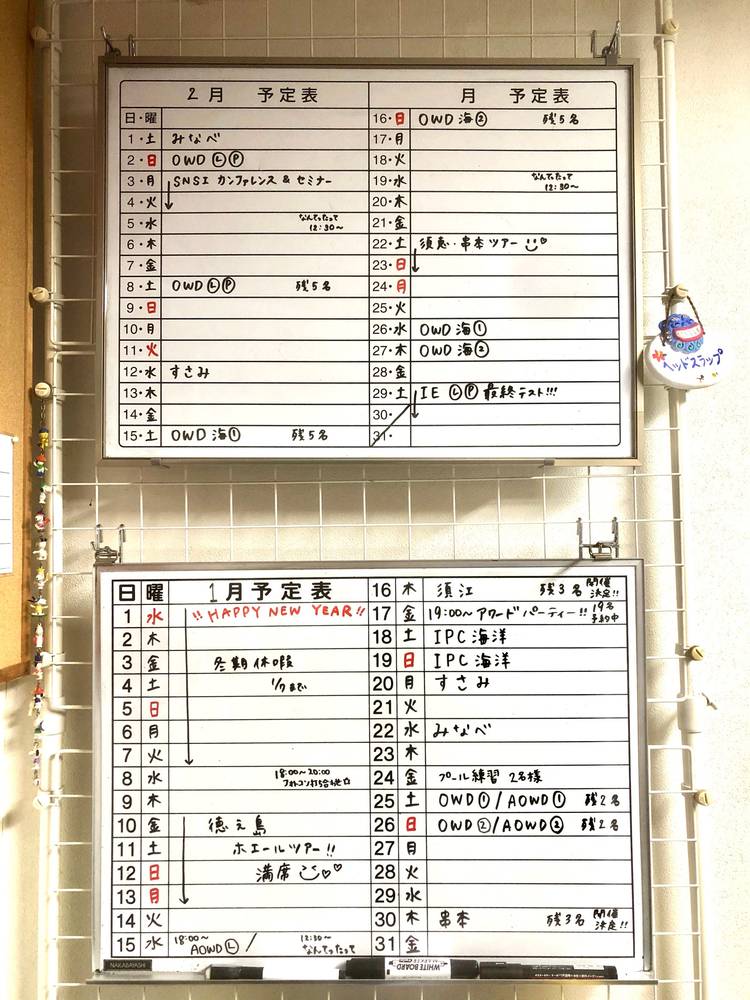 2月 予定表
日・曜
1・土 みなべ
2・日 OWD Ⓛ Ⓟ
3・月 SNSI カンファレンス & セミナー
4・火
5・水 なんてったって 12:30〜
6・木
7・金
8・土 OWD Ⓛ Ⓟ 残5名
9・日
10・月
11・火
12・水 すさみ
13・木
14・金
15・土 OWD 海① 残5名
月 予定表
16・日 OWD 海② 残5名
17・月
18・火
19・水 なんてったって 12:30〜
20・木
21・金
22・土 須恵・串本ツアー
23・日
24・月
25・火
26・水 OWD 海①
27・木 OWD 海②
28・金
29・土 IE Ⓛ Ⓟ 最終テスト!!!
30・
31・
ヘッドスラップ
日 曜 1月予定表
1 水 !! HAPPY NEW YEAR!!
2 木
3 金 冬期休暇
4 土 1/7まで
5 日
6 月
7 火
8 水 18:00〜20:00
フォトコン打ち合わせ☆
9 木
10 金 徳之島
11 土 ホエールツアー!!
12 日 満席 ♡♡
13 月
14 火
15 水 18:00〜 AOWD Ⓛ / 12:30〜 なんてったって
16 木 須江 残3名 開催決定!!
17 金 19:00〜アワードパーティー!! 19名 予約中
18 土 IPC海洋
19 日 IPC海洋
20 月 すさみ
21 火
22 水 みなべ
23 木
24 金 プール練習 2名様
25 土 OWD① / AOWD① 残2名
26 日 OWD② / AOWD② 残2名
27 月
28 火
29 水
30 木 串本 残3名 開催決定!!
31 金
NAKABAYASHI
WHITE BOARD MARKER